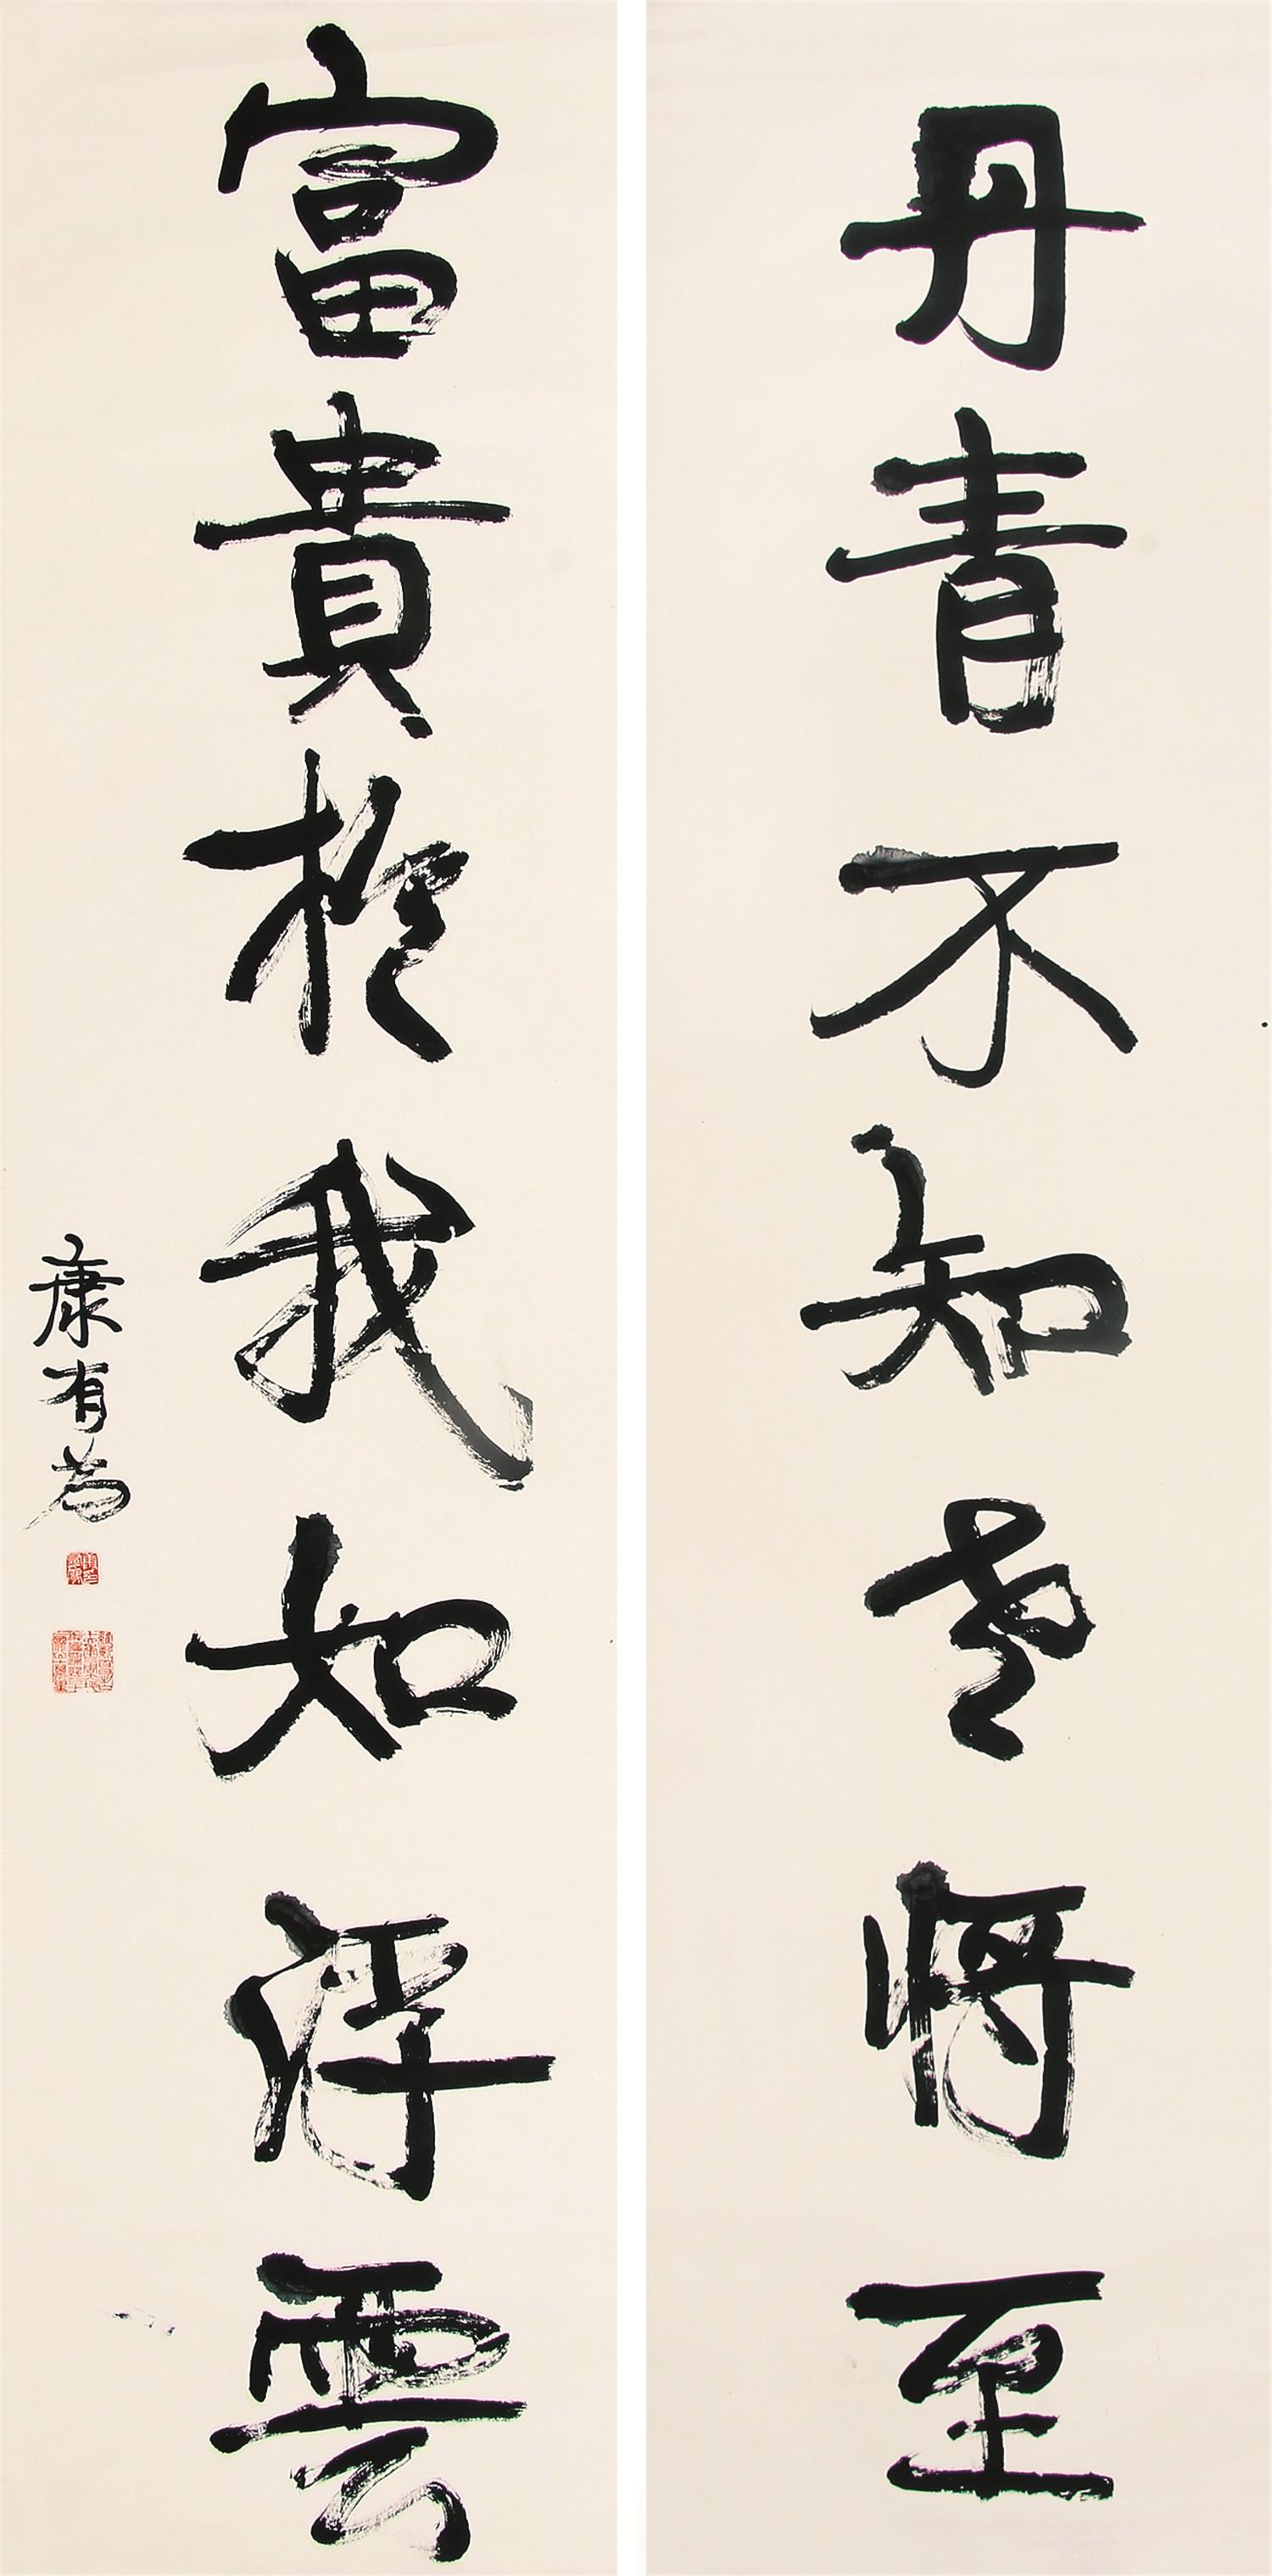 丹青不知老将至
富貴於我如浮雲
康有為